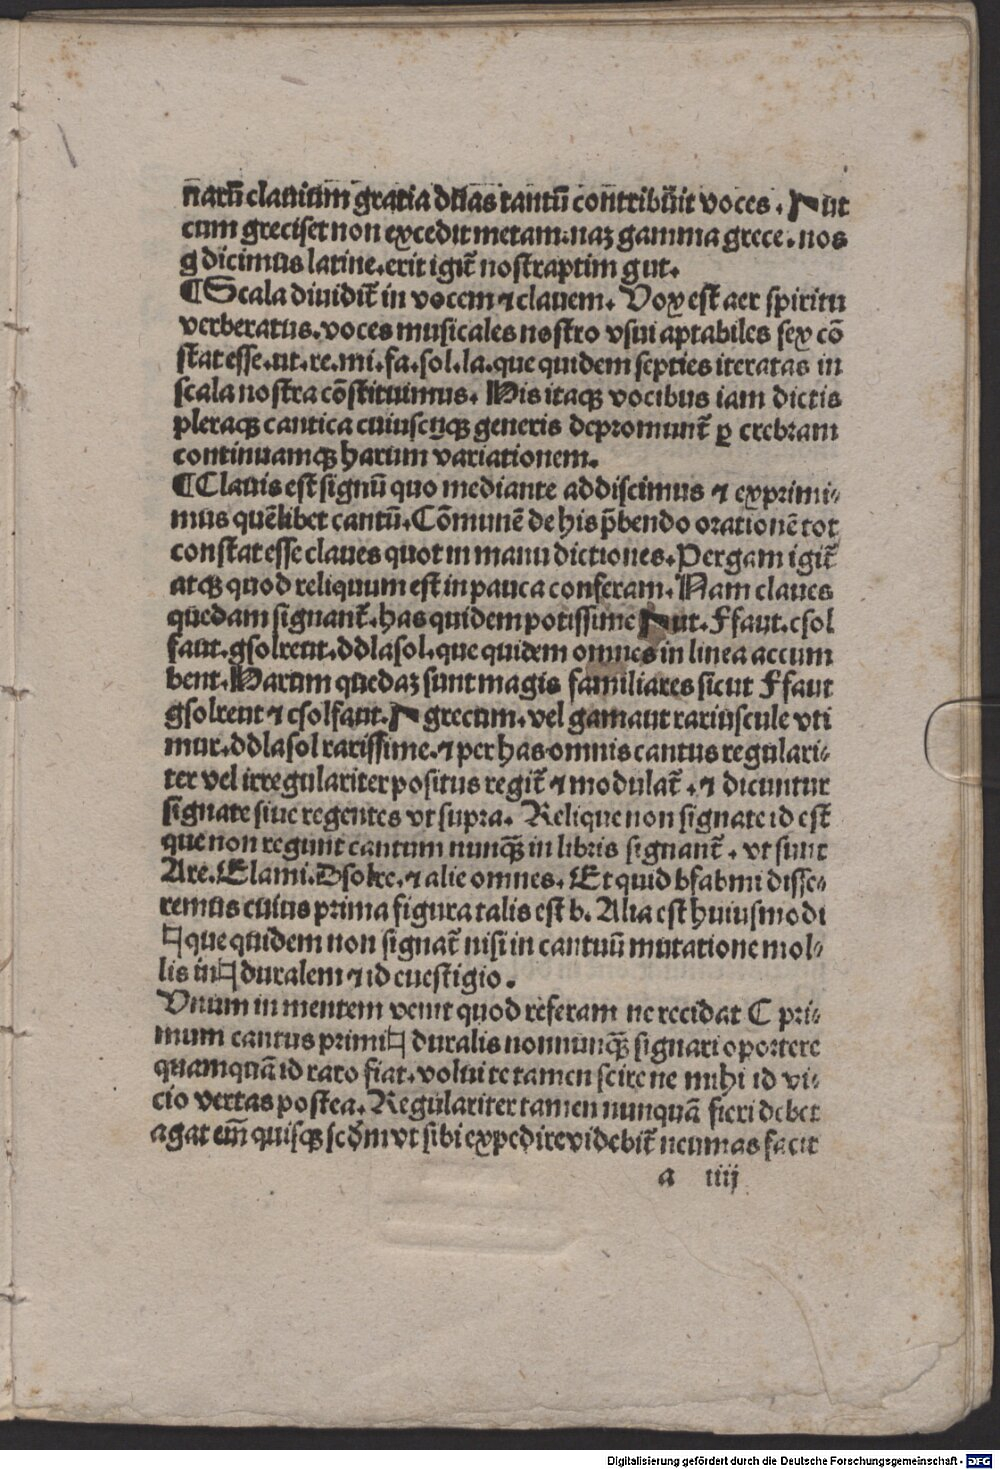 narū clauium gratia duas tantū contribuit voces. Γ ut
cum greciset non excedit metam: naꝫ gamma grece. nos
g dicimus latine. erit igit̄ nostraptim gut.
¶Scala diuidit̄ in vocem ⁊ clauem. Vox est aer spiritu
verberatus. voces musicales nostro vsui aptabiles sex cō
stat esse. ut. re. mi. fa. sol. la. que quidem septies iteratas in
scala nostra cōstituimus. His itaqꝫ vocibus iam dictis
pleraqꝫ cantica cuiuscūqꝫ generis depromunt̄ ꝑ crebram
continuamqꝫ harum variationem.
¶Clauis est signū quo mediante addiscimus ⁊ exprimi⸗
mus quēlibet cantū. Cōmunē de his p̄bendo orationē tot
constat esse claues quot in manu dictiones. Pergam igit̄
atqꝫ quod reliquum est in pauca conferam. Nam claues
quedam signant̄. has quidem potissime Γ ut. Ffaut. csol
faut. gsolreut. ddlasol. que quidem omnes in linea accum
bent. Harum quedaꝫ sunt magis familiares sicut Ffaut
gsolreut ⁊ csolfaut. Γ grecum. vel gamaut rariuscule vti
mur. ddlasol rarissime. ⁊ per has omnis cantus regulari⸗
ter vel irregulariter positus regit̄ ⁊ modulat̄. ⁊ dicuntur
signate siue regentes vt supra. Relique non signate id est
que non regunt cantum nunqꝫ̄ in libris signant̄. vt sunt
Are. Elami. Dsolre. ⁊ alie omnes. Et quid bfabmi disse⸗
remus cuius prima figura talis est b. Alia est huiusmodi
♮ que quidem non signat̄ nisi in cantuū mutatione mol⸗
lis in ♮ duralem ⁊ id euestigio.
Vnum in mentem venit quod referam ne recidat C pri⸗
mum cantus primi ♮ duralis nonnunqꝫ̄ signari oportere
quamquā id raro fiat. volui te tamen scire ne mihi id vi⸗
cio vertas postea. Regulariter tamen nunquā fieri debet
agat em̄ quisqꝫ scd̄m vt sibi expedire videbit̄ neumas facit
a iiij
Digitalisierung gefördert durch die Deutsche Forschungsgemeinschaft - DFG